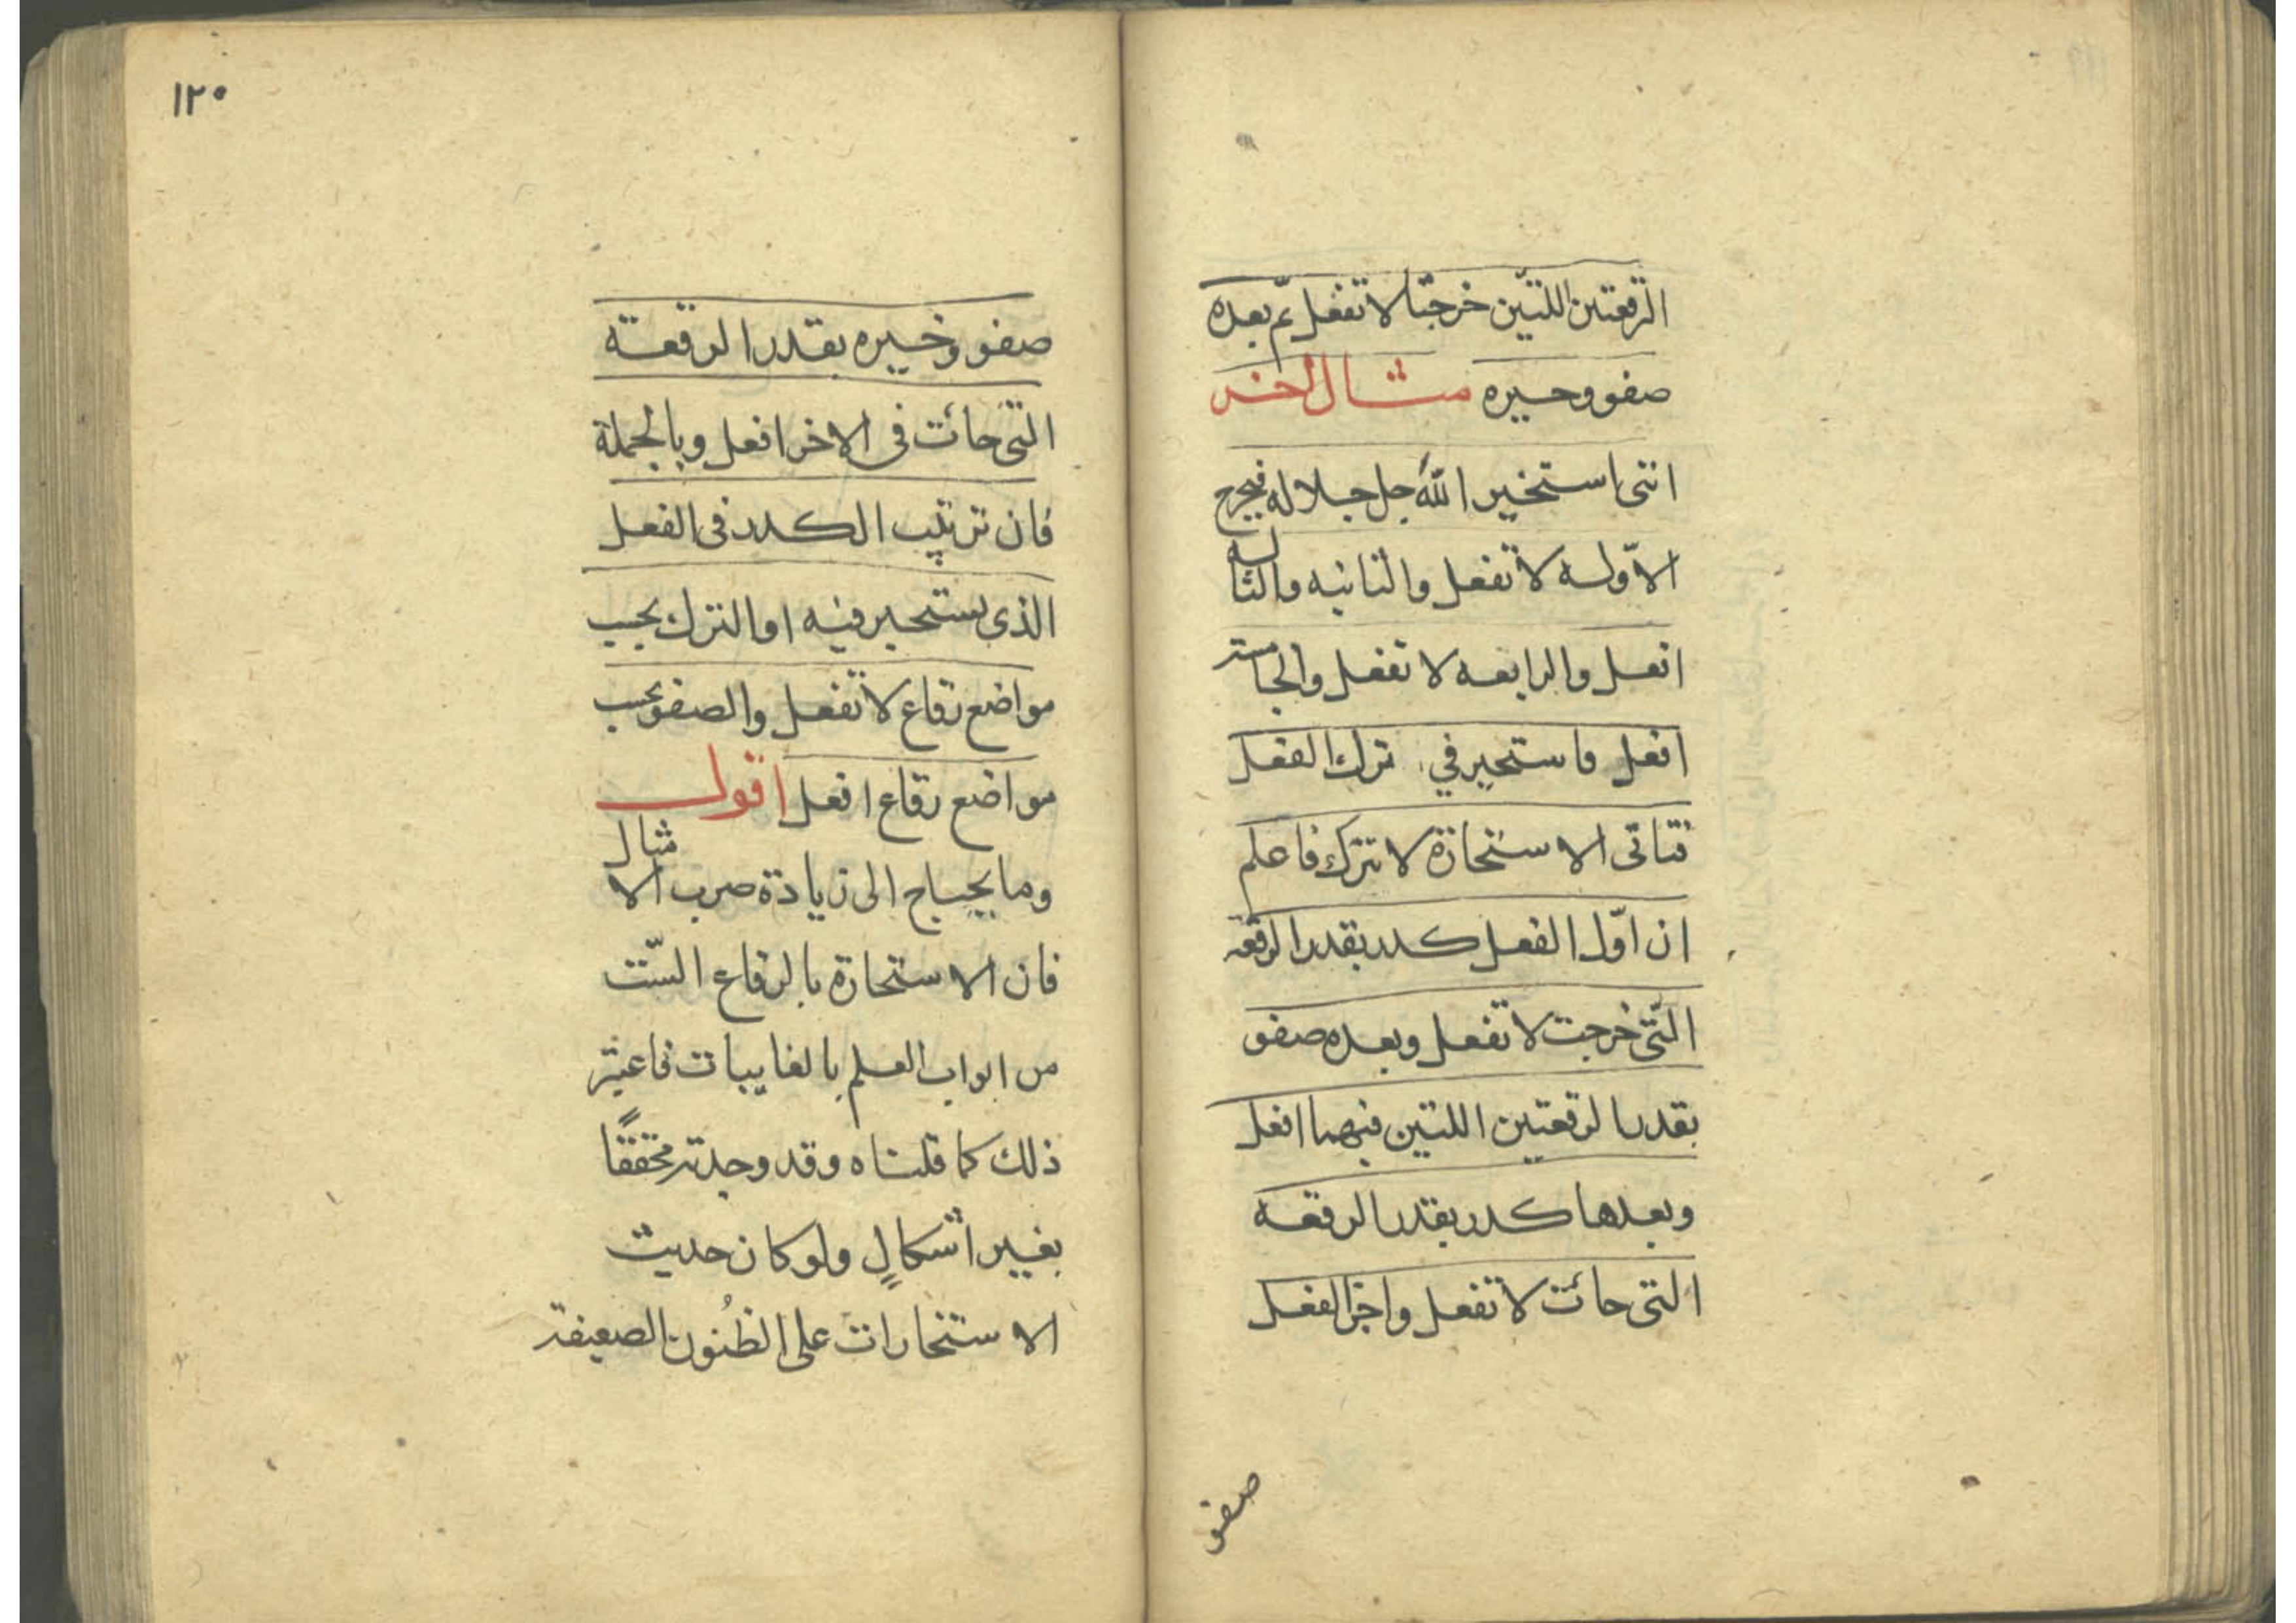 الرقعتين اللتين خرجتا لا تفعل ثم بعده
صفو وخيره مثال اخر
انني استخير الله جل جلاله فيخرج
الاوله لا تفعل والثانيه والثالثه
افعل والرابعه لا تفعل والخامسة
افعل فاستخير في ترك الفعل
فتاتي الاستخارة لا تترك فاعلم
ان اوّل الفعل كدر بقدر الرقعة
التي خرجت لا تفعل وبعده صفو
بقدر الرقعتين اللتين فيهما افعل
وبعدها كدر بقدر الرقعه
التي جائت لا تفعل واخر الفعل
صفو
١٢٠
صفو وخيره بقدر الرقعة
التي جائت في الاخر افعل وبالجملة
فان ترتيب الكدر في الفعل
الذي يستخير فيه او الترك بحسب
مواضع رقاع لا تفعل والصفو بحسب
مواضع رقاع افعل اقول
وما يحتاج الى زيادة ضرب الامثال
فان الاستخارة بالرقاع الستّ
من ابواب العلم بالغايبات فاعتبر
ذلك كما قلناه وقد وجدته محققًا
بغير اشكالٍ ولو كان حديث
الاستخارات على الظنُون الضعيفة